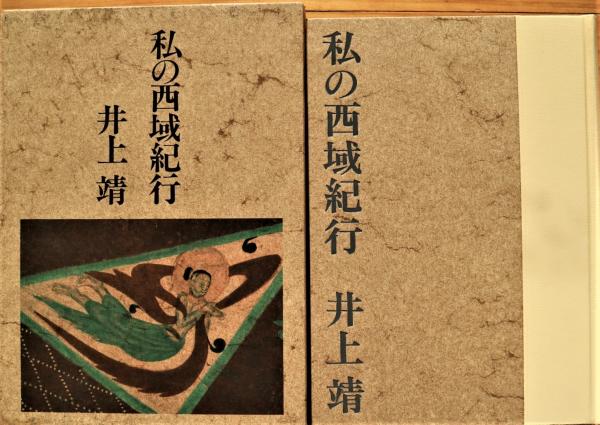 私の西域紀行
井上靖
私の西域紀行 井上靖